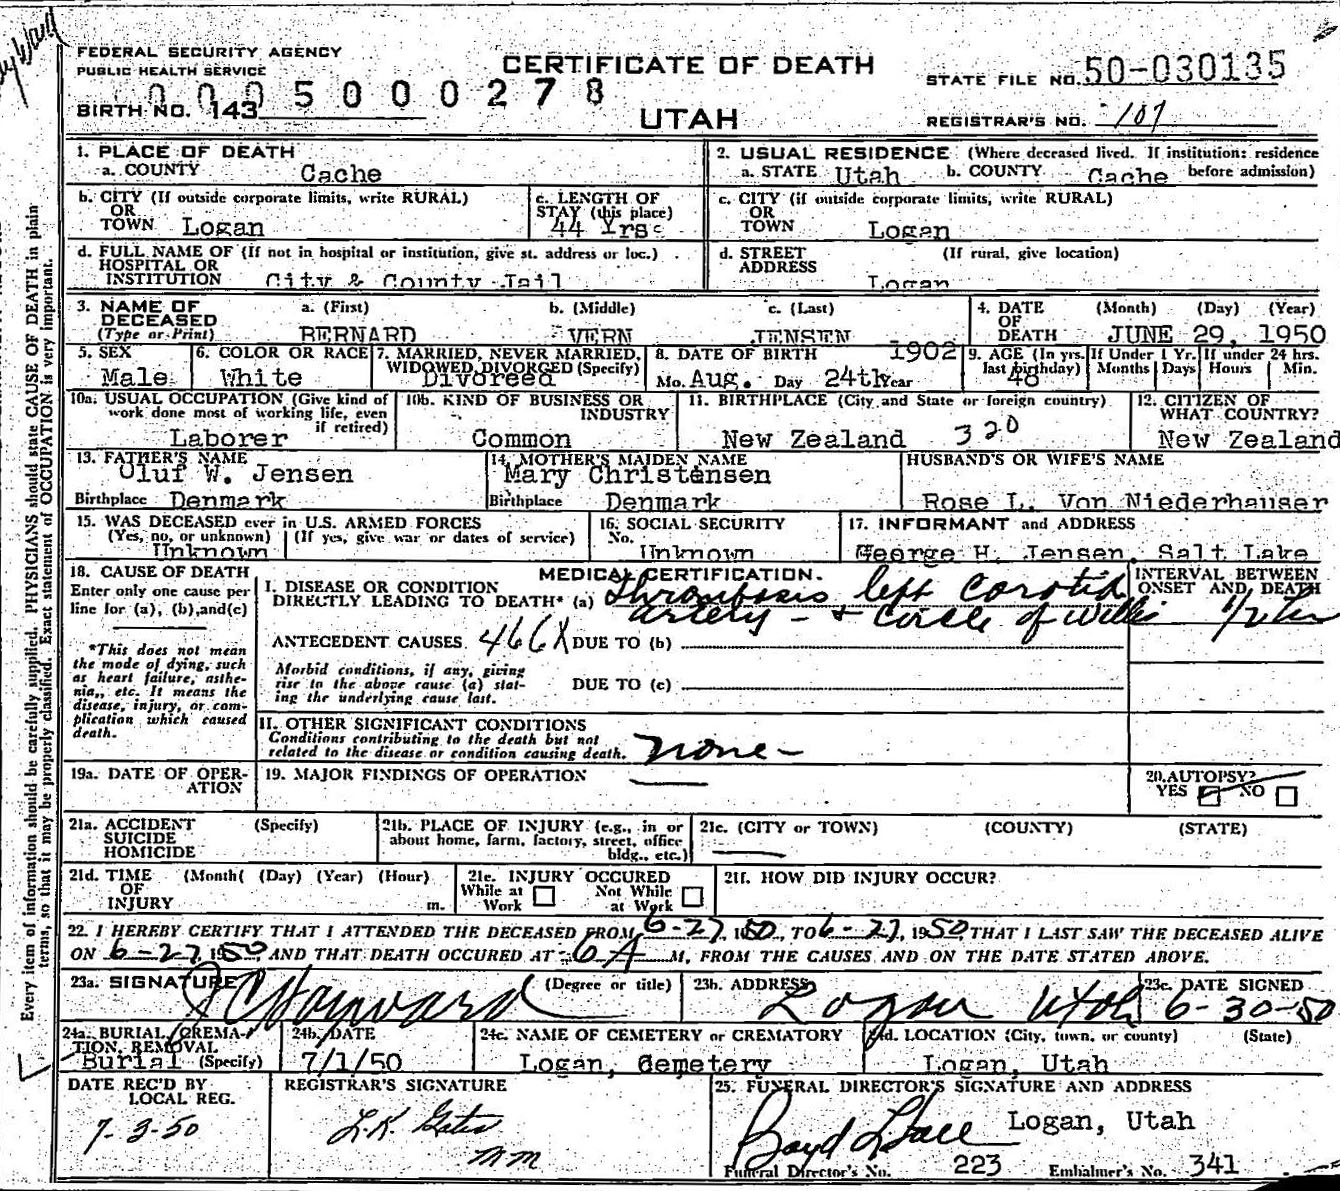 FEDERAL SECURITY AGENCY
PUBLIC HEALTH SERVICE
CERTIFICATE OF DEATH
STATE FILE NO. 50-030135
0005000278
BIRTH NO. 143
UTAH
REGISTRAR'S NO. 107
1. PLACE OF DEATH
a. COUNTY Cache
2. USUAL RESIDENCE (Where deceased lived. If institution: residence before admission)
a. STATE Utah b. COUNTY Cache
b. CITY (If outside corporate limits, write RURAL)
OR
TOWN Logan
c. LENGTH OF
STAY (this place)
44 Yrs.
c. CITY (if outside corporate limits, write RURAL)
OR
TOWN Logan
d. FULL NAME OF (If not in hospital or institution, give st. address or loc.)
HOSPITAL OR
INSTITUTION City & County Jail
d. STREET (If rural, give location)
ADDRESS Logan
3. NAME OF
DECEASED
(Type or Print)
a. (First) b. (Middle) c. (Last)
BERNARD VERN JENSEN
4. DATE (Month) (Day) (Year)
OF
DEATH JUNE 29, 1950
5. SEX
Male
6. COLOR OR RACE
White
7. MARRIED, NEVER MARRIED,
WIDOWED, DIVORCED (Specify)
Divoreed
8. DATE OF BIRTH 1902
Mo. Aug. Day 24th Year
9. AGE (In yrs. last birthday)
48
If Under 1 Yr.
Months Days
If under 24 hrs.
Hours Min.
10a. USUAL OCCUPATION (Give kind of
work done most of working life, even
if retired)
Laborer
10b. KIND OF BUSINESS OR
INDUSTRY
Common
11. BIRTHPLACE (City and State or foreign country)
New Zealand 320
12. CITIZEN OF
WHAT COUNTRY?
New Zealand
13. FATHER'S NAME
Oluf W. Jensen
Birthplace Denmark
14. MOTHER'S MAIDEN NAME
Mary Christensen
Birthplace Denmark
HUSBAND'S OR WIFE'S NAME
Rose L. Von Niederhauser
15. WAS DECEASED ever in U.S. ARMED FORCES
(Yes, no, or unknown) (If yes, give war or dates of service)
Unknown
16. SOCIAL SECURITY
No.
Unknown
17. INFORMANT and ADDRESS
George H. Jensen, Salt Lake
18. CAUSE OF DEATH
Enter only one cause per
line for (a), (b), and (c)
*This does not mean
the mode of dying, such
as heart failure, asthe-
nia, etc. It means the
disease, injury, or com-
plication which caused
death.
MEDICAL CERTIFICATION.
I. DISEASE OR CONDITION
DIRECTLY LEADING TO DEATH* (a) Thrombosis left carotid
artery - + circle of Willis
INTERVAL BETWEEN
ONSET AND DEATH
1/2 hr
ANTECEDENT CAUSES 466X DUE TO (b)
Morbid conditions, if any, giving
rise to the above cause (a) stat-
ing the underlying cause last.
DUE TO (c)
II. OTHER SIGNIFICANT CONDITIONS
Conditions contributing to the death but not
related to the disease or condition causing death.
none -
19a. DATE OF OPER-
ATION
19. MAJOR FINDINGS OF OPERATION
20. AUTOPSY?
YES NO
21a. ACCIDENT (Specify)
SUICIDE
HOMICIDE
21b. PLACE OF INJURY (e.g., in or
about home, farm, factory, street, office
bldg., etc.)
21c. (CITY or TOWN) (COUNTY) (STATE)
21d. TIME (Month( (Day) (Year) (Hour)
OF
INJURY m.
21e. INJURY OCCURED
While at Work Not While at Work
21f. HOW DID INJURY OCCUR?
22. I HEREBY CERTIFY THAT I ATTENDED THE DECEASED FROM 6-27, 1950, TO 6-27, 1950 THAT I LAST SAW THE DECEASED ALIVE
ON 6-27, 1950 AND THAT DEATH OCCURED AT 6 A M, FROM THE CAUSES AND ON THE DATE STATED ABOVE.
23a. SIGNATURE (Degree or title)
J C Hayward
23b. ADDRESS
Logan Utah
23c. DATE SIGNED
6-30-50
24a. BURIAL, CREMA-
TION, REMOVAL
Burial (Specify)
24b. DATE
7/1/50
24c. NAME OF CEMETERY or CREMATORY
Logan, Cemetery
24d. LOCATION (City, town, or county) (State)
Logan, Utah
DATE REC'D BY
LOCAL REG.
7-3-50
REGISTRAR'S SIGNATURE
L.K. Gates
mm
25. FUNERAL DIRECTOR'S SIGNATURE AND ADDRESS
Boyd L Hall Logan, Utah
Funeral Director's No. 223 Embalmer's No. 341
Every item of information should be carefully supplied. PHYSICIANS should state CAUSE OF DEATH in plain
terms, so that it may be properly classified. Exact statement of OCCUPATION is very important.